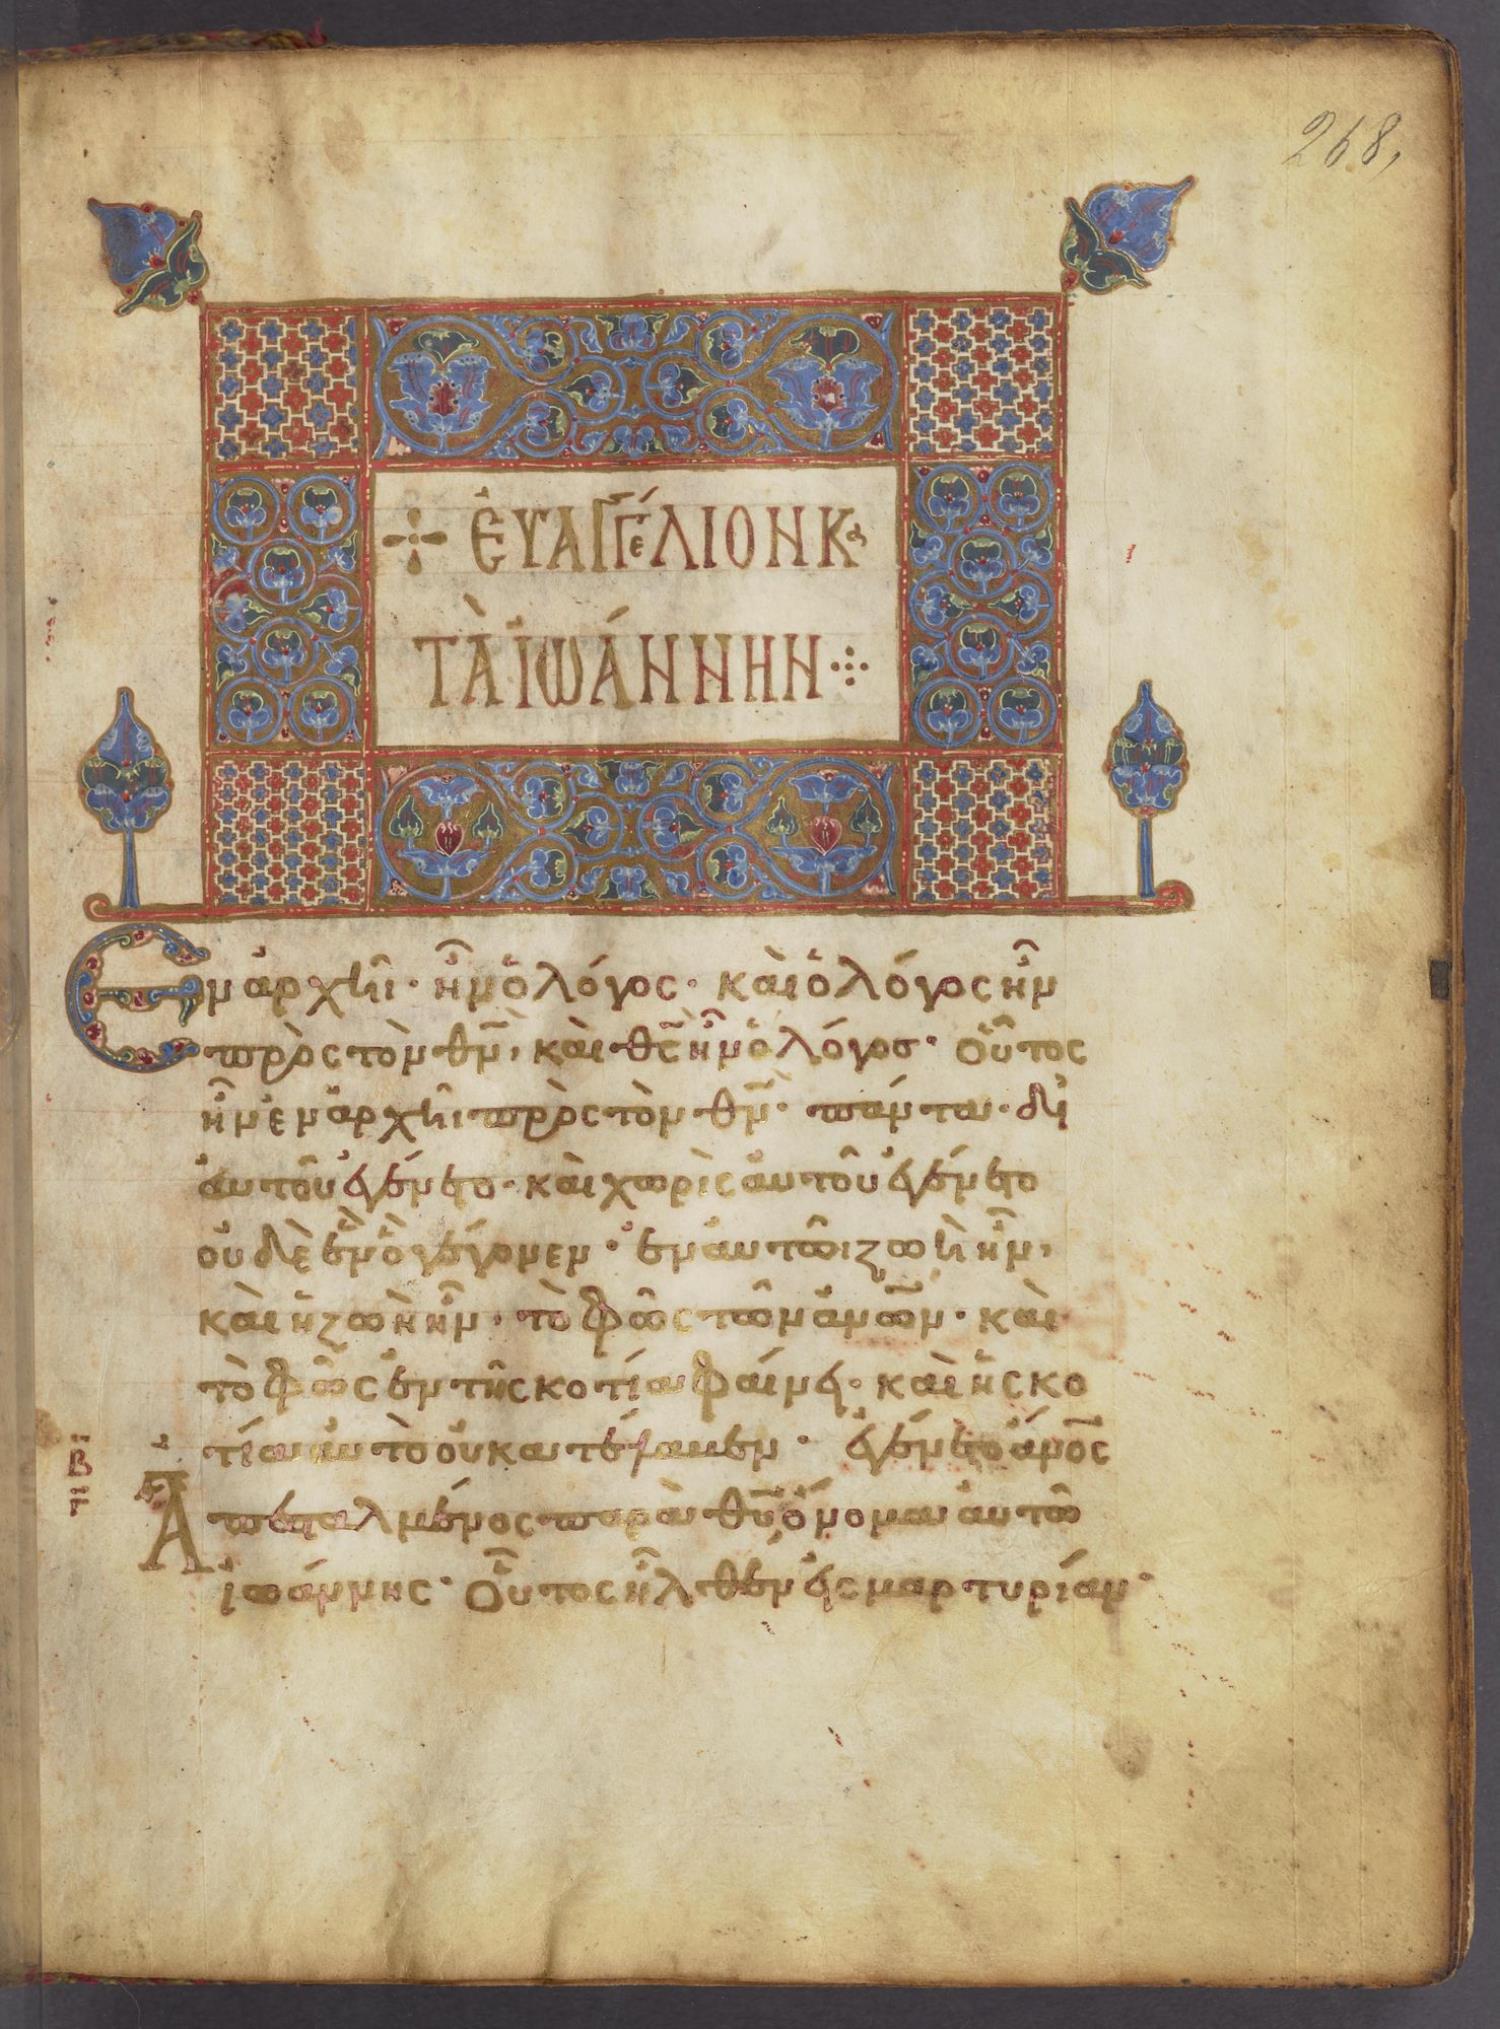 268,
ΕΥΑΓΓΕΛΙΟΝ Κα
ΤΑ ΙΩΑΝΝΗΝ
Ἐν ἀρχῆι· ἦν ὁ λόγος· καὶ ὁ λόγος ἦν
πρὸς τὸν θν, καὶ θς ἦν ὁ λόγοσ· Οὗτος
ἦν ἐν ἀρχῆι πρὸς τὸν θν· πάντα· δι
αὐτοῦ ἐγένετο· καὶ χωρὶς αὐτοῦ ἐγένετο
οὐδὲ ἓν ὃ γέγονεν· ἐν αὐτῶι ζωὴ ἦν,
καὶ ἡ ζωὴ ἦν· τὸ φῶς τῶν ἀνων· καὶ
τὸ φῶς ἐν τῆ σκοτία φαίνει· καὶ ἡ σκο
τία αὐτὸ οὐ κατέλαβεν· ἐγένετο ἀνος
Ἀπεσταλμένος παρὰ θυ ὄνομα αὐτῶ
ἰωάννης· Οὗτος ἦλθεν εἰς μαρτυρίαν·
Β